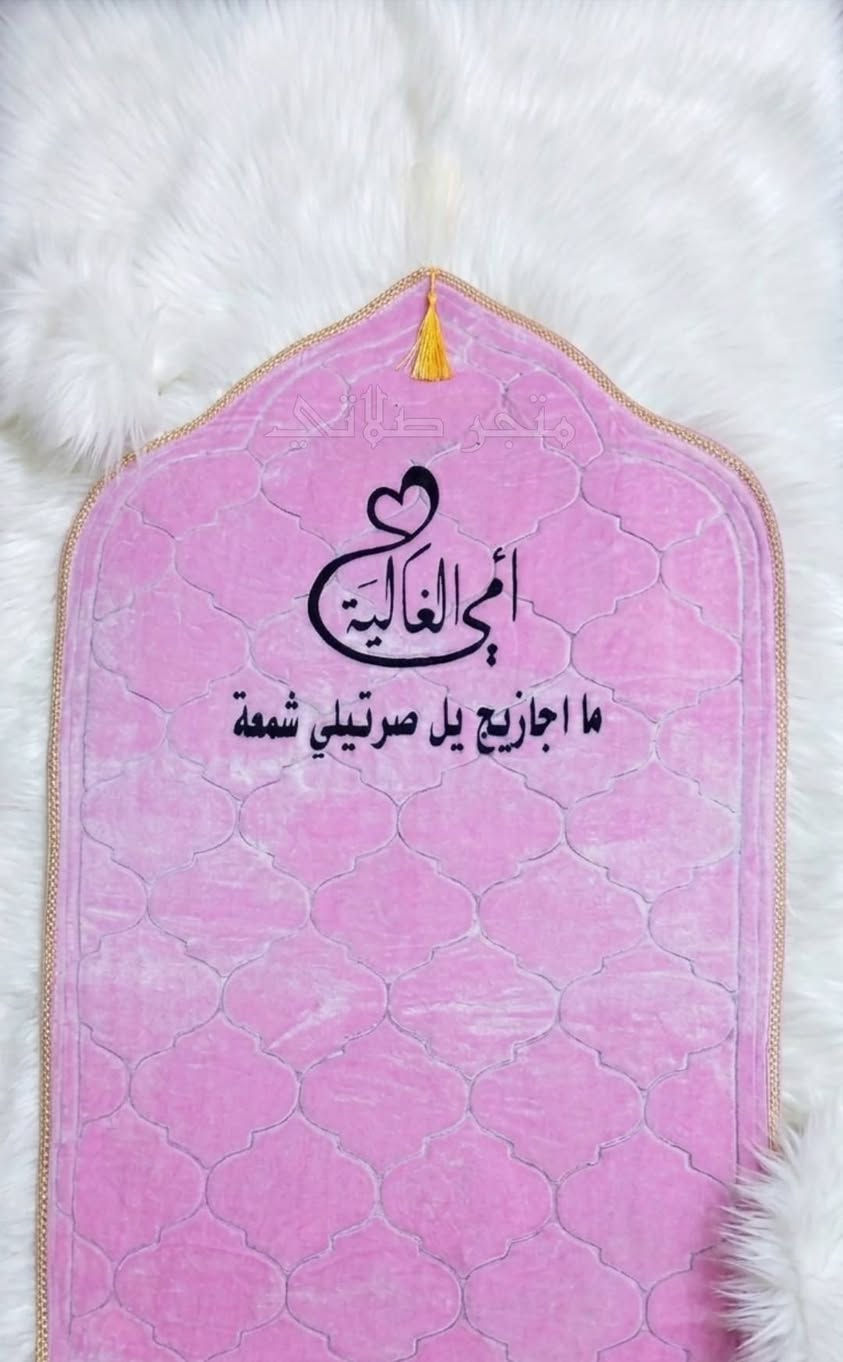 متجر صلاتي
أمي الغَاليَة
ما اجازيج يل صرتيلي شمعة